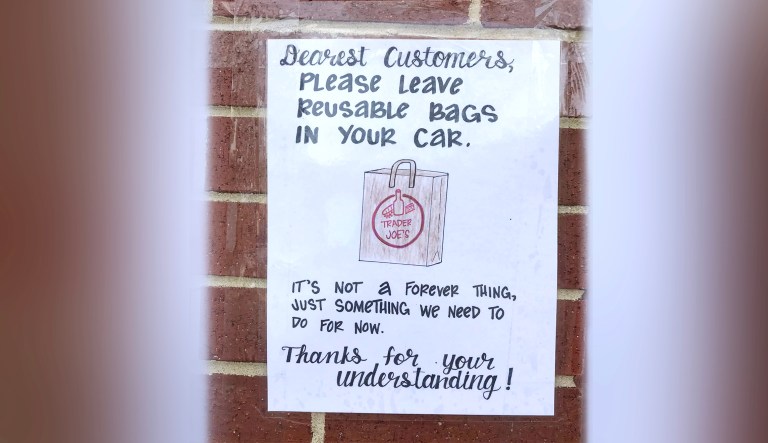 Dearest Customers,
PLEASE LEAVE
REUSABLE BAGS
IN YOUR CAR.
TRADER
JOE'S
IT'S NOT a FOREVER THING,
JUST SOMETHING WE NEED TO
DO FOR NOW.
Thanks for your
understanding!